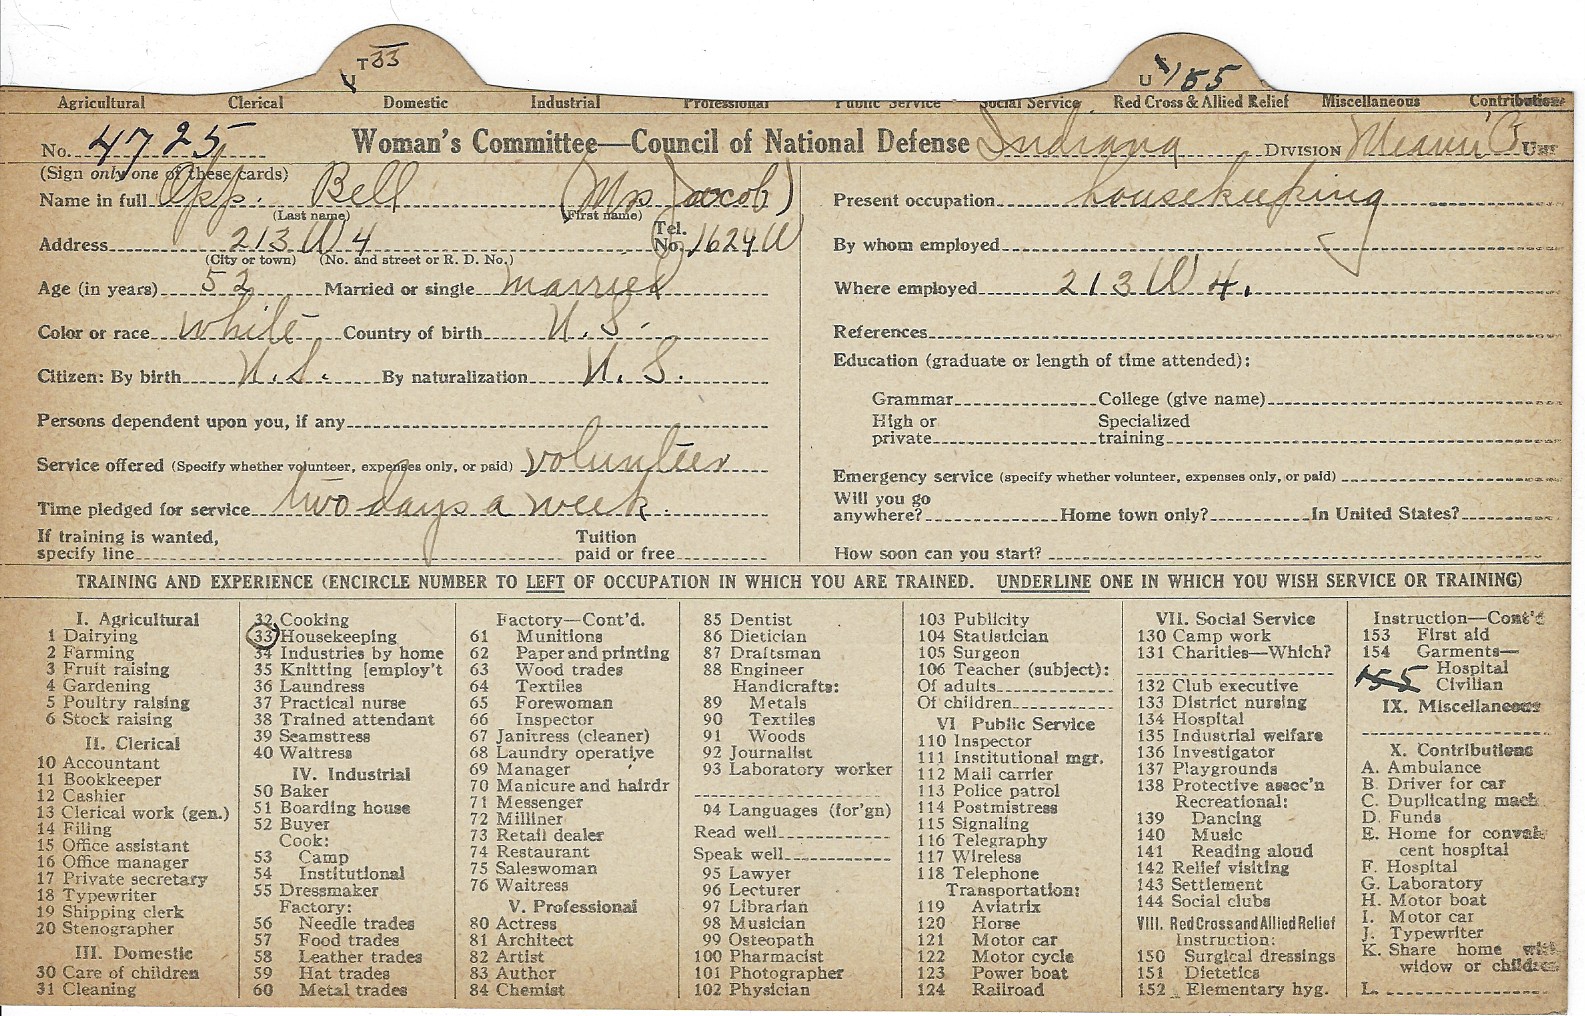 T 33
U
U 155
Agricultural Clerical Domestic Industrial Professional Public Service Social Service Red Cross & Allied Relief Miscellaneous Contributions
No. 4725 Woman's Committee—Council of National Defense Indiana DIVISION Miami Co
(Sign only one of these cards)
Name in full Opp. Bell (Mrs Jacob)
(Last name) (First name)
Address 213 W 4 Tel. No. 1624 W
(City or town) (No. and street or R. D. No.)
Age (in years) 52 Married or single married
Color or race white Country of birth U. S.
Citizen: By birth U. S. By naturalization U. S.
Persons dependent upon you, if any
Service offered (Specify whether volunteer, expenses only, or paid) volunteer
Time pledged for service two days a week.
If training is wanted,
specify line
Tuition
paid or free
Present occupation housekeeping
By whom employed
Where employed 213 W 4.
References
Education (graduate or length of time attended):
Grammar College (give name)
High or private Specialized training
Emergency service (specify whether volunteer, expenses only, or paid)
Will you go
anywhere? Home town only? In United States?
How soon can you start?
TRAINING AND EXPERIENCE (ENCIRCLE NUMBER TO LEFT OF OCCUPATION IN WHICH YOU ARE TRAINED. UNDERLINE ONE IN WHICH YOU WISH SERVICE OR TRAINING)
I. Agricultural
1 Dairying
2 Farming
3 Fruit raising
4 Gardening
5 Poultry raising
6 Stock raising
II. Clerical
10 Accountant
11 Bookkeeper
12 Cashier
13 Clerical work (gen.)
14 Filing
15 Office assistant
16 Office manager
17 Private secretary
18 Typewriter
19 Shipping clerk
20 Stenographer
III. Domestic
30 Care of children
31 Cleaning
32 Cooking
33 Housekeeping
34 Industries by home
35 Knitting [employ't
36 Laundress
37 Practical nurse
38 Trained attendant
39 Seamstress
40 Waitress
IV. Industrial
50 Baker
51 Boarding house
52 Buyer
Cook:
53 Camp
54 Institutional
55 Dressmaker
Factory:
56 Needle trades
57 Food trades
58 Leather trades
59 Hat trades
60 Metal trades
Factory—Cont'd.
61 Munitions
62 Paper and printing
63 Wood trades
64 Textiles
65 Forewoman
66 Inspector
67 Janitress (cleaner)
68 Laundry operative
69 Manager
70 Manicure and hairdr
71 Messenger
72 Milliner
73 Retail dealer
74 Restaurant
75 Saleswoman
76 Waitress
V. Professional
80 Actress
81 Architect
82 Artist
83 Author
84 Chemist
85 Dentist
86 Dietician
87 Draftsman
88 Engineer
Handicrafts:
89 Metals
90 Textiles
91 Woods
92 Journalist
93 Laboratory worker
94 Languages (for'gn)
Read well
Speak well
95 Lawyer
96 Lecturer
97 Librarian
98 Musician
99 Osteopath
100 Pharmacist
101 Photographer
102 Physician
103 Publicity
104 Statistician
105 Surgeon
106 Teacher (subject):
Of adults
Of children
VI Public Service
110 Inspector
111 Institutional mgr.
112 Mail carrier
113 Police patrol
114 Postmistress
115 Signaling
116 Telegraphy
117 Wireless
118 Telephone
Transportation:
119 Aviatrix
120 Horse
121 Motor car
122 Motor cycle
123 Power boat
124 Railroad
VII. Social Service
130 Camp work
131 Charities—Which?
132 Club executive
133 District nursing
134 Hospital
135 Industrial welfare
136 Investigator
137 Playgrounds
138 Protective assoc'n
Recreational:
139 Dancing
140 Music
141 Reading aloud
142 Relief visiting
143 Settlement
144 Social clubs
VIII. Red Cross and Allied Relief
Instruction:
150 Surgical dressings
151 Dietetics
152 Elementary hyg.
Instruction—Cont'd
153 First aid
154 Garments—
Hospital
155 Civilian
IX. Miscellaneous
X. Contributions
A. Ambulance
B. Driver for car
C. Duplicating mach
D. Funds
E. Home for convales
cent hospital
F. Hospital
G. Laboratory
H. Motor boat
I. Motor car
J. Typewriter
K. Share home with
widow or children
L.